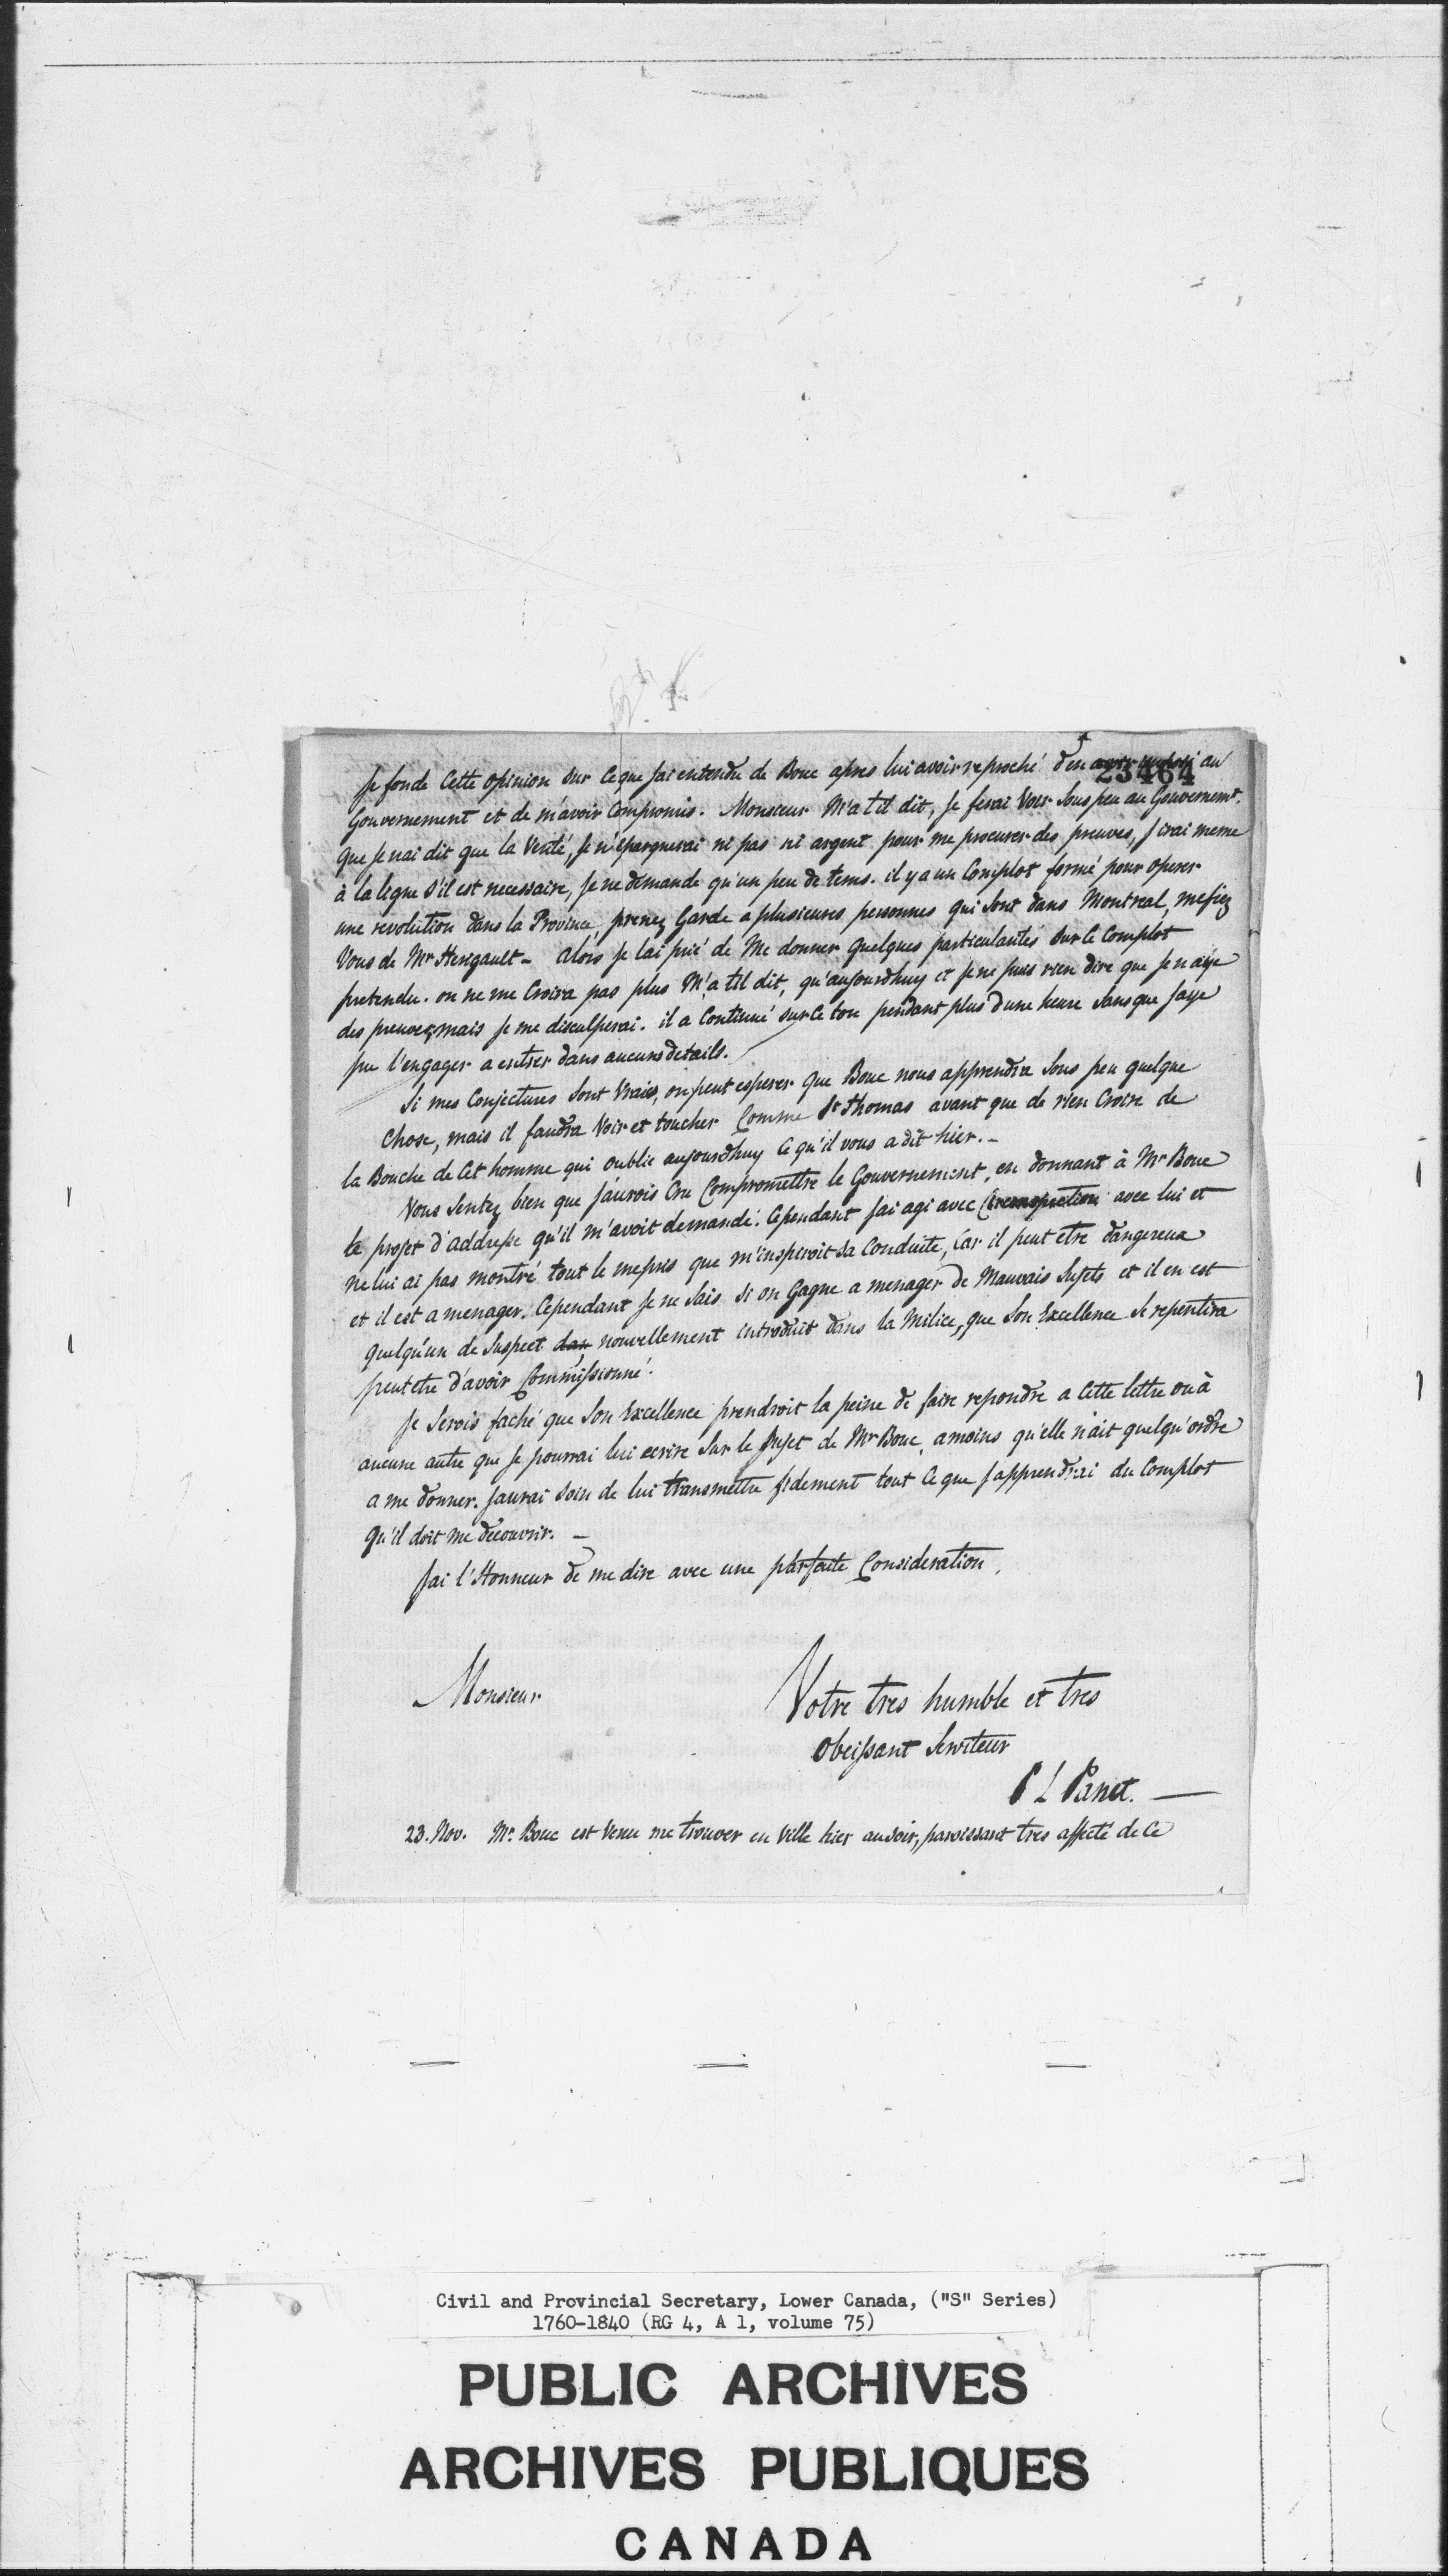 23464
Je fonde Cette opinion sur Ceque J'ai entendu de Bouc apres lui avoir reproché d'en au
Gouvernement et de m'avoir Compromis. Monsieur M'a til dit, Je ferai Voir Sous peu au Gouvernemt.
que Je n'ai dit que la Verité, Je n'épargnerai ni pas ni argent pour me procurer des preuves, J'irai meme
à la ligne S'il est necessaire, Je ne demande qu'un peu de tems. il y a un Complot formé pour operer
une revolution dans la Province, prenez Garde a plusieures personnes qui Sont dans Montreal, mefiez
Vous de Mr Hengault - alors Je l'ai prié de Me donner quelques particularités Sur le Complot
pretendu. on ne me Croira pas plus M'a til dit, qu'aujourdhuy et Je ne puis rien dire que Je n'aije
des preuves, mais Je me disculperai. il a Continué sur Ce ton pendant plus d'une heure Sans que J'aye
pu l'engager a entrer dans aucuns details.
Si mes Conjectures Sont Vraies, on peut esperer que Bouc nous apprendra Sous peu quelque
Chose, mais il faudra Voir et toucher Comme St Thomas avant que de rien Croire de
la Bouche de Cet homme qui oublie aujourdhuy Ce qu'il vous a dit hier. -
Vous Sentez bien que J'aurois Cru Compromettre le Gouvernement, en donnant à Mr Bouc
le projet d'addresse qu'il m'avoit demandé. Cependant J'ai agi avec Circonspection avec lui et
ne lui ai pas montré tout le mepris que m'inspiroit sa Conduite, Car il peut etre dangereux
et il est a menager. Cependant Je ne Sais Si on Gagne a menager de Mauvais Sujets et il en est
quelqu'un de Suspect dans nouvellement introduit dans la Milice, que Son Excellence Se repentira
peutetre d'avoir Commissionné.
Je Serois faché que Son Excellence prendroit la peine de faire repondre a Cette lettre ou à
aucune autre que Je pourrai lui ecrire Sur le Sujet de Mr Bouc, amoins qu'elle n'ait quelqu'ordre
a me donner. J'aurai Soin de lui transmettre fidement tout Ce que J'apprendrai du Complot
qu'il doit me decouvrir. -
J'ai l'Honneur de me dire avec une parfaite Consideration,
Monsieur
Votre tres humble et tres
obeissant Serviteur
P L Panet. -
23. Nov. Mr. Bouc est Venu me trouver en Ville hier au Soir, paroissant tres affecté de Ce
Civil and Provincial Secretary, Lower Canada, ("S" Series)
1760-1840 (RG 4, A 1, volume 75)
PUBLIC ARCHIVES
ARCHIVES PUBLIQUES
CANADA